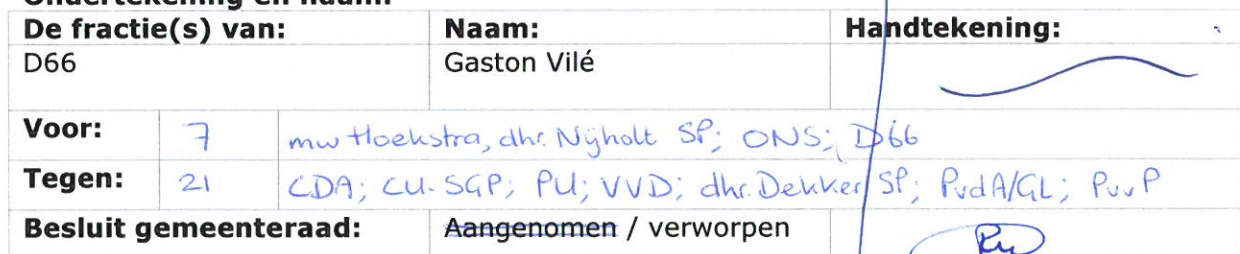 De fractie(s) van: Naam: Handtekening:
D66 Gaston Vilé
Voor: 7 mw Hoekstra, dhr. Nijholt SP; ONS; D66
Tegen: 21 CDA; CU-SGP; PU; VVD; dhr. Dekker SP; PvdA/GL; PvvP
Besluit gemeenteraad: Aangenomen / verworpen